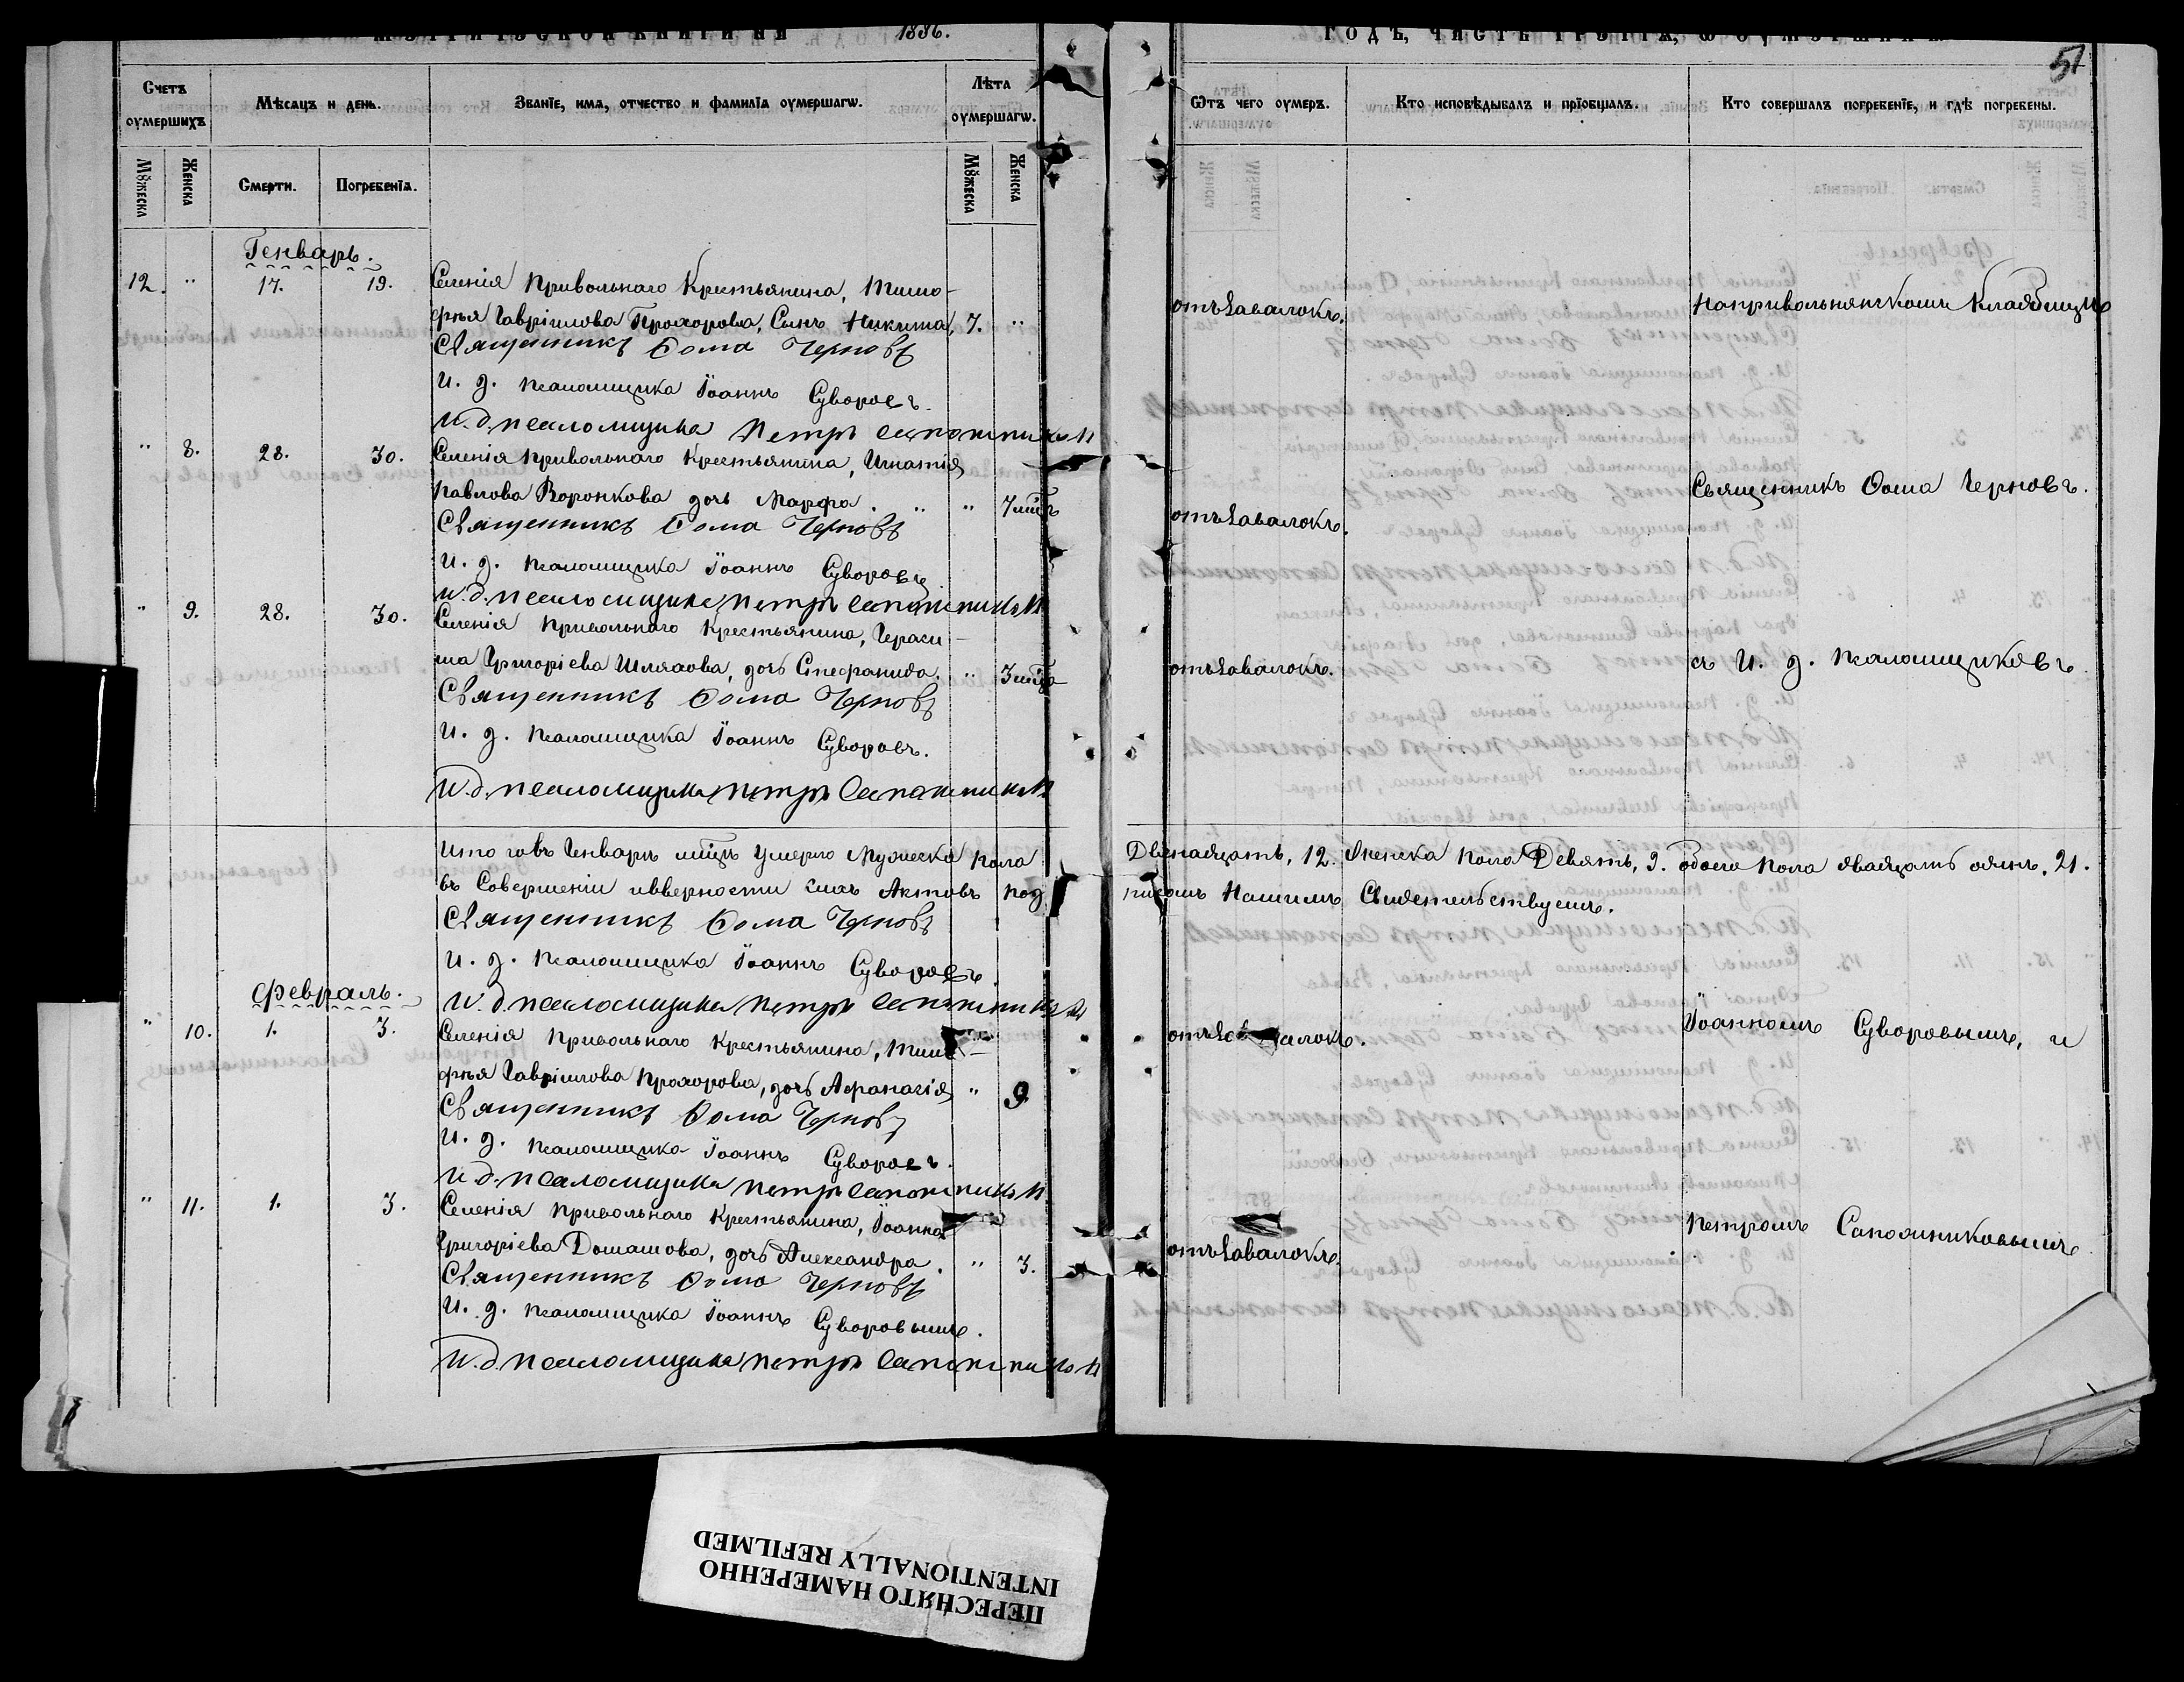 МЕТРИЧЕСКОЙ КНИГИ НА 1886.
Счетъ оумершихъ
Мѣсяцъ и день.
Званїе, имя, отчество и фамилїя оумершагѡ.
Лѣта оумершагѡ.
Мꙋжеска
Женска
Смерти.
Погребенїя.
Мꙋжеска
Женска
Генварь.
12. " 17. 19. Селенія Привольнаго Крестьянина, Тимо-
фея Гавріилова Прохорова, Сынъ Никита, 7. "
Священникъ Ѳома Черновъ
И. д. псаломщика Іоаннъ Суворовъ.
И. д. псаломщика Петръ Сапожниковъ
" 8. 28. 30. Селенія Привольнаго Крестьянина, Игнатія
Павлова Воронкова дочь Марфа. " " 7 мѣс
Священникъ Ѳома Черновъ
И. д. псаломщика Іоаннъ Суворовъ
И. д. псаломщика Петръ Сапожниковъ
" 9. 28. 30. Селенія Привольнаго Крестьянина, Гераси-
ма Григоріева Шляхова, дочь Стефанида. " 3 мѣс
Священникъ Ѳома Черновъ
И. д. псаломщика Іоаннъ Суворовъ.
И. д. псаломщика Петръ Сапожниковъ
Итого въ Генварѣ мѣцѣ умерло Мужеска пола
въ Совершеніи и вѣрности сихъ Актовъ под
Священникъ Ѳома Черновъ
И. д. псаломщика Іоаннъ Суворовъ
И. д. псаломщика Петръ Сапожниковъ
Февраль.
" 10. 1. 3. Селенія Привольнаго Крестьянина, Тимо-
фея Гавріилова Прохорова, дочь Афанасія " 9
Священникъ Ѳома Черновъ
И. д. псаломщика Іоаннъ Суворовъ.
И. д. псаломщика Петръ Сапожниковъ
" 11. 1. 3. Селенія Привольнаго Крестьянина, Іоанна
Григоріева Домашова, дочь Александра. " 3.
Священникъ Ѳома Черновъ
И. д. псаломщика Іоаннъ Суворовымъ.
И. д. псаломщика Петръ Сапожниковъ
ГОДЪ, ЧАСТЬ ТРЕТІЯ, Ѡ ОУМЕРШИХЪ
51
Ѿтъ чего оумеръ.
Кто исповѣдывалъ и прїобщалъ.
Кто совершалъ погребенїе, и гдѣ погребены.
отъ Завалокъ.
На привольнянскомъ Кладбищѣ
отъ Завалокъ.
Священникъ Ѳома Черновъ.
отъ Завалокъ.
съ И. д. псаломщиковъ
Двенадцать, 12. Женска пола Девять, 9. обоего пола двадцать одинъ, 21.
писомъ Нашимъ Свидетельствуемъ.
отъ Завалокъ.
Іоанномъ Суворовымъ, и
отъ Завалокъ.
Петромъ Сапожниковымъ
ПЕРЕСНЯТО НАМЕРЕННО
INTENTIONALLY REFILMED